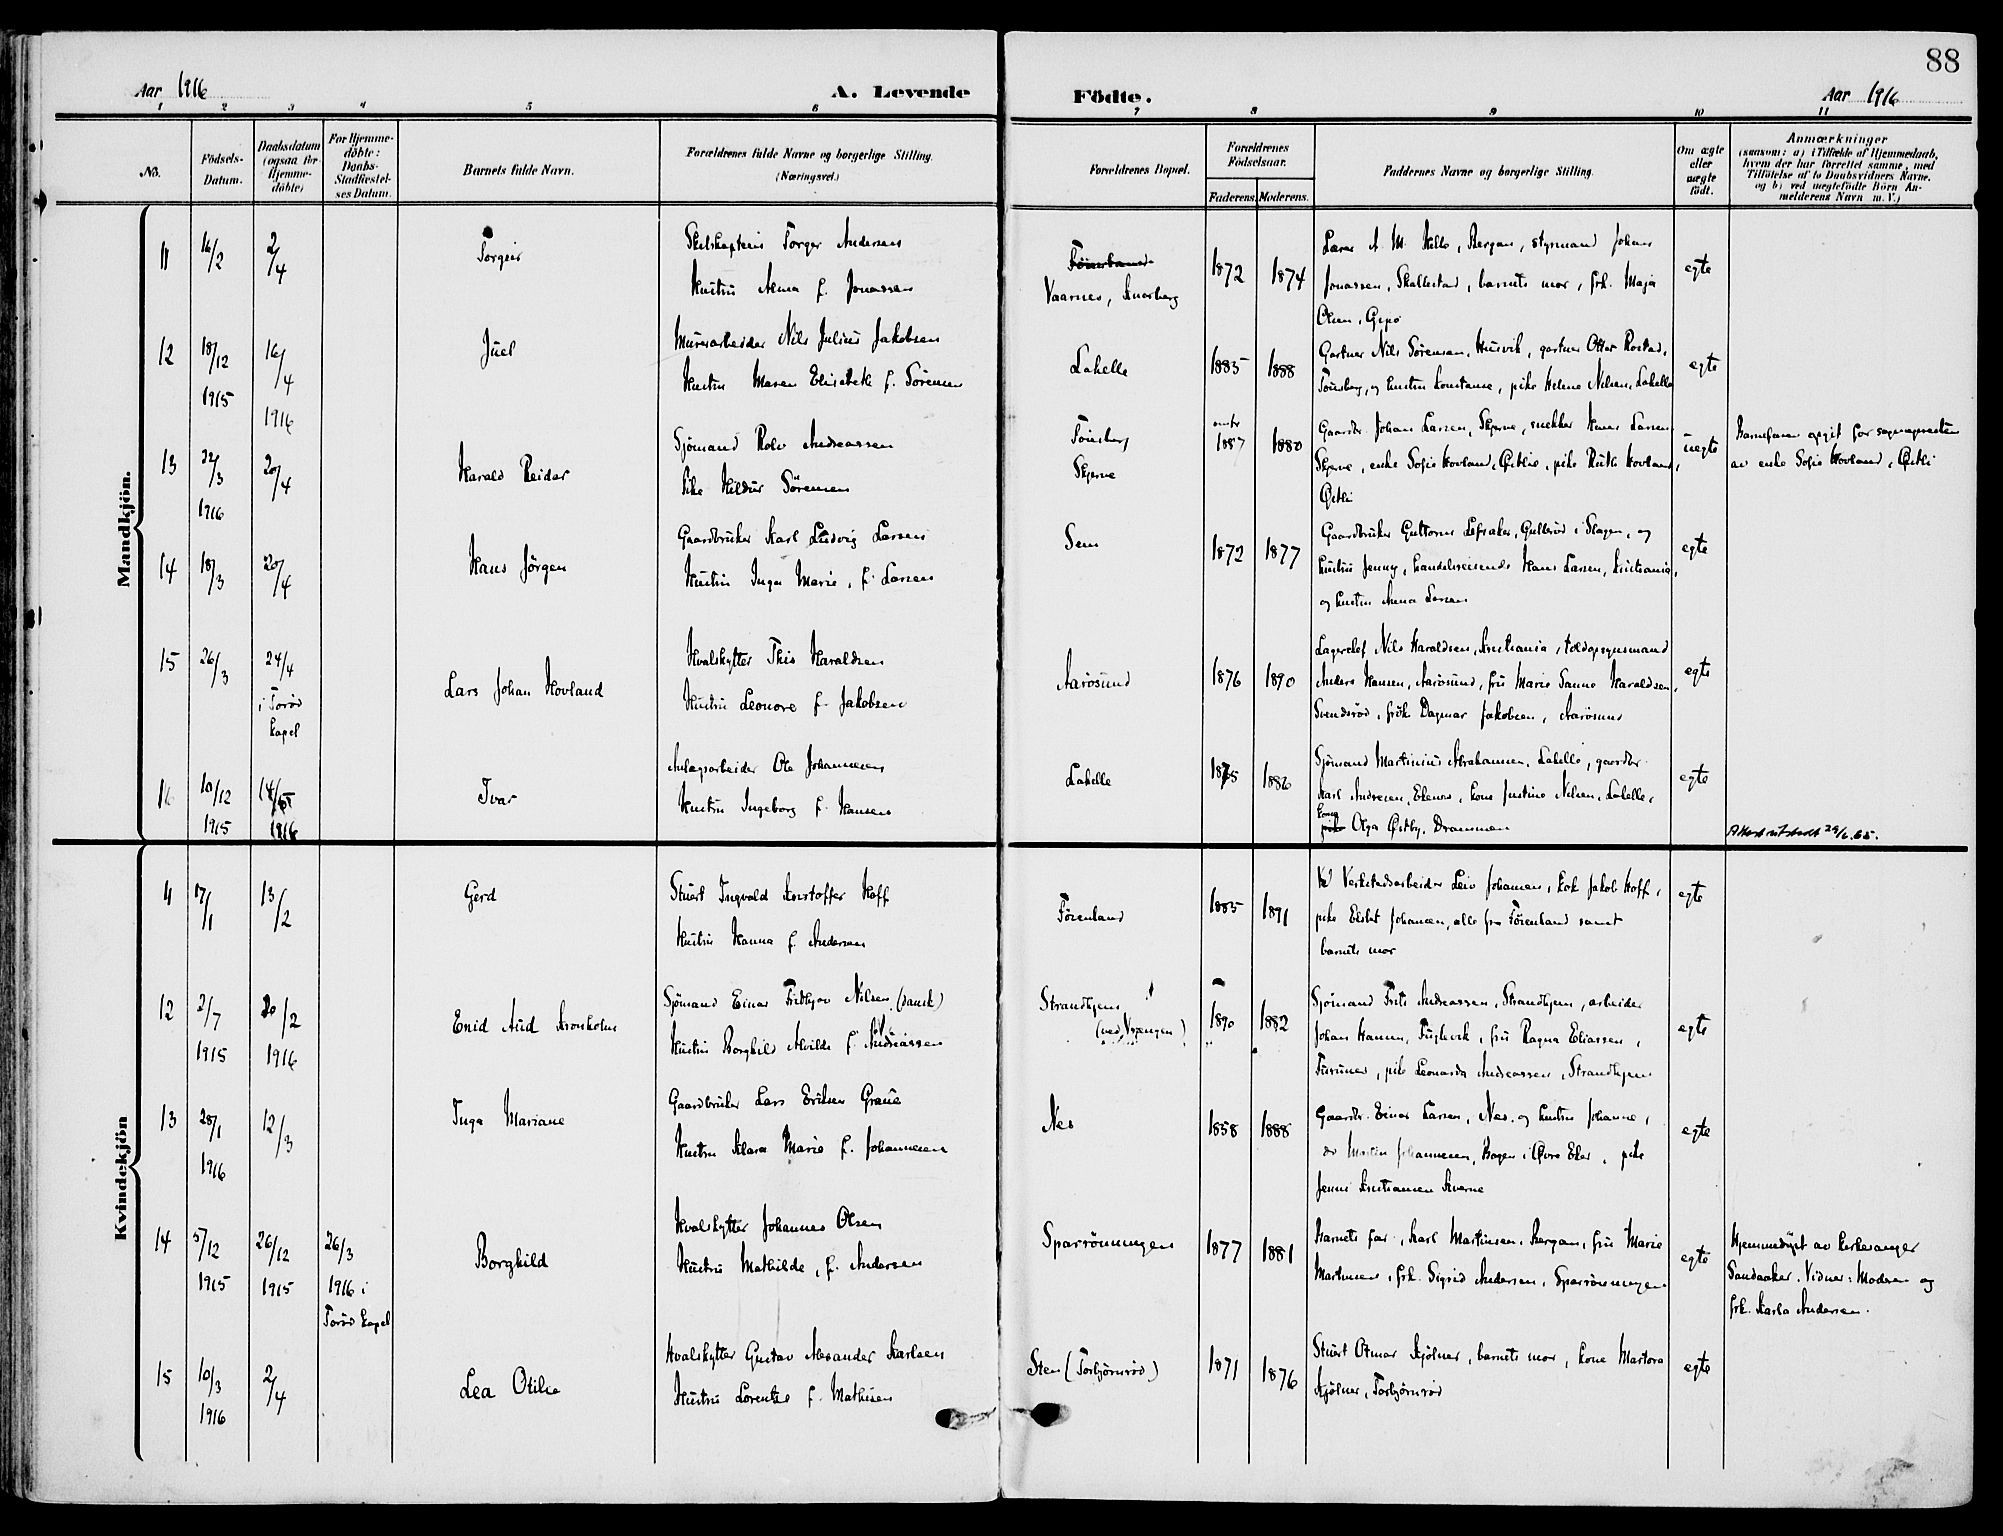 88
Aar 1916
A. Levende
Födte.
Aar 1916
1 2 3 4 5 6 7 8 9 10 11
No.
Födsels-
Datum.
Daabsdatum
(ogsaa for
Hjemme-
döbte)
For Hjemme-
döbte:
Daabs-
Stadfæstel-
ses Datum.
Barnets fulde Navn.
Forældrenes fulde Navne og borgerlige Stilling.
(Næringsvei.)
Forældrenes Bopæl.
Forældrenes
Födselsaar.
Faderens. Moderens.
Faddernes Navne og borgerlige Stilling.
Om ægte
eller
uægte
födt.
Anmærkninger
(saasom: a) i Tilfælde af Hjemmedaab,
hvem der har forrettet samme, med
Tilföielse af to Daabsvidners Navne,
og b) ved uægtefödte Börn An-
melderens Navn m. V.)
Mandkjön.
11
16/2
2/4
Torgeir
Skibskaptein Torger Andersen
Hustru Alma f. Jonassen
Vaarnes,
1872
1874
A. M. Bergan, styrmand Johan
Jonassen, Skallestad, barnets mor, frk. Maja
Olsen, Gipö
egte
12
18/12
1915
16/4
1916
Juel
Murerarbeider Nils Julius Jakobsen
Hustru Maren Elisabeth f. Sörensen
Lahelle
1885
1888
Gartner Nils Sörensen, Husvik, gartner Otter Rostad,
Tönsberg, og hustru Konstanse, pike Helene Nilsen, Lahelle
egte
13
22/3
1916
20/4
Harald Reidar
Sjömand Rolv Andreassen
Pike Hildur Sörensen
Tönsberg
Skjerve
1887
1880
Gaardbr. Johan Larsen, Skjerve, snekker Larsen
Skjerve, enke Sofie Hovland, Östlie, pike Ruth Hovland,
Östli
uegte
Barnefaren opgit for sognepresten
av enke Sofie Hovland, Östli
14
18/3
20/4
Hans Jörgen
Gaardbruker Karl Ludvig Larsen
Hustru Inga Marie, f. Larsen
Sem
1872
1877
Gaardbruker Guttorm Lefsaker, Gullerød i Slagen, og
hustru Jenny, handelsreisende Hans Larsen, Kristiania,
og hustru Anna Larsen
egte
15
26/3
24/4
i Torød
kapel
Lars Johan Hovland
Hvalskytter This Haraldsen
Hustru Leonore f. Jakobsen
Aarøsund
1876
1890
Lagerchef Nils Haraldsen, Kristiania, toldopsynsmand
Anders Hansen, Aarøsund, fru Marie Sanne Haraldsen,
Svendsrød, frøk. Dagmar Jakobsen, Aarøsund
egte
16
10/12
1915
14/5
1916
Ivar
Anlægsarbeider Ole Johannesen
Hustru Ingeborg f. Hansen
Lahelle
1886
Sjömand Martinius Abrahamsen, Lahelle, gaardbr.
Karl Andresen, Ekenes, kone Justine Nilsen, Lahelle,
kone
pike Olga Østby, Drammen
egte
Attest utstedt 29/6.65.
Kvindekjön
11
17/1
13/2
Gerd
Stuert Ingvald Kristoffer Hoff
Hustru Hanna f. Andersen
Förenland
1885
1891
Verkstedsarbeider Leiv Johansen, kok Jakob Hoff,
pike Elsbet Johansen, alle fra Förenland samt
barnets mor
egte
12
2/7
1915
20/2
1916
Enid Aud Kronholm
Sjömand Einar Fridtjov Nilsen (dansk)
Hustru Borghild Alvilde f. Andreassen
Strandhjem
(ved Vrængen)
1890
1882
Sjömand Frits Andreassen, Strandhjem, arbeider
Johan Hansen, Fuglevik, fru Ragna Eliassen,
Furumes, pike Leonarda Andreassen, Strandhjem
egte
13
28/1
1916
12/3
Inga Mariane
Gaardbruker Lars Eriksen Graue
Hustru Klara Marie f. Johannesen
Nes
1858
1888
Gaardbr. Einar Larsen, Nes, og hustru Johanne,
do Martin Johannesen, Hagen i Øvre Eker, pike
Jenni Kristiansen Kverne
egte
14
5/12
1915
26/12
1915
26/3
1916 i
Torød kapel
Borghild
Hvalskytter Johannes Olsen
Hustru Mathilde, f. Andersen
Sparrönningen
1877
1881
Barnets far, Karl Martinsen, Bergan, fru Marie
Martinsen, frk. Sigrid Andersen, Sparrönningen
egte
Hjemmedöpt av kirkesanger
Sandaaker. Vidner: Moderen og
frk. Karla Andersen.
15
10/3
1916
2/4
Lea Otilie
Hvalskytter Gustav Alexander Karlsen
Hustru Lorentse f. Mathisen
Sten (Torbjörnsröd)
1871
1876
Stuert Otmar Kjölner, barnets mor, kone Martora
Kjölner, Torbjörnsröd
egte